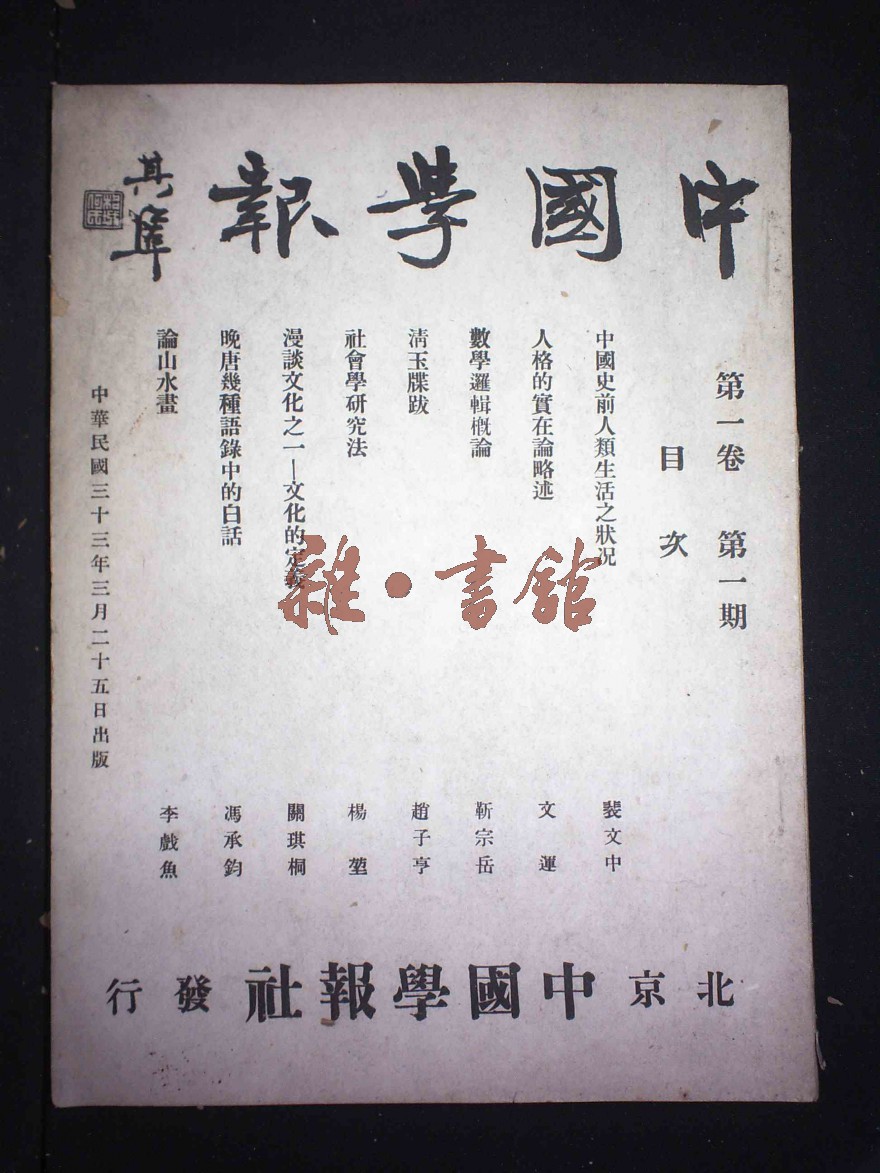 中國學報
其隼
第一卷 第一期
目次
中國史前人類生活之狀況 裴文中
人格的實在論略述 文運
數學邏輯槪論 靳宗岳
清玉牒跋 趙子亨
社會學研究法 楊堃
漫談文化之一—文化的定義 關琪桐
晚唐幾種語錄中的白話 馮承鈞
論山水畫 李戲魚
中華民國三十三年三月二十五日出版
北京中國學報社發行
雜·書館